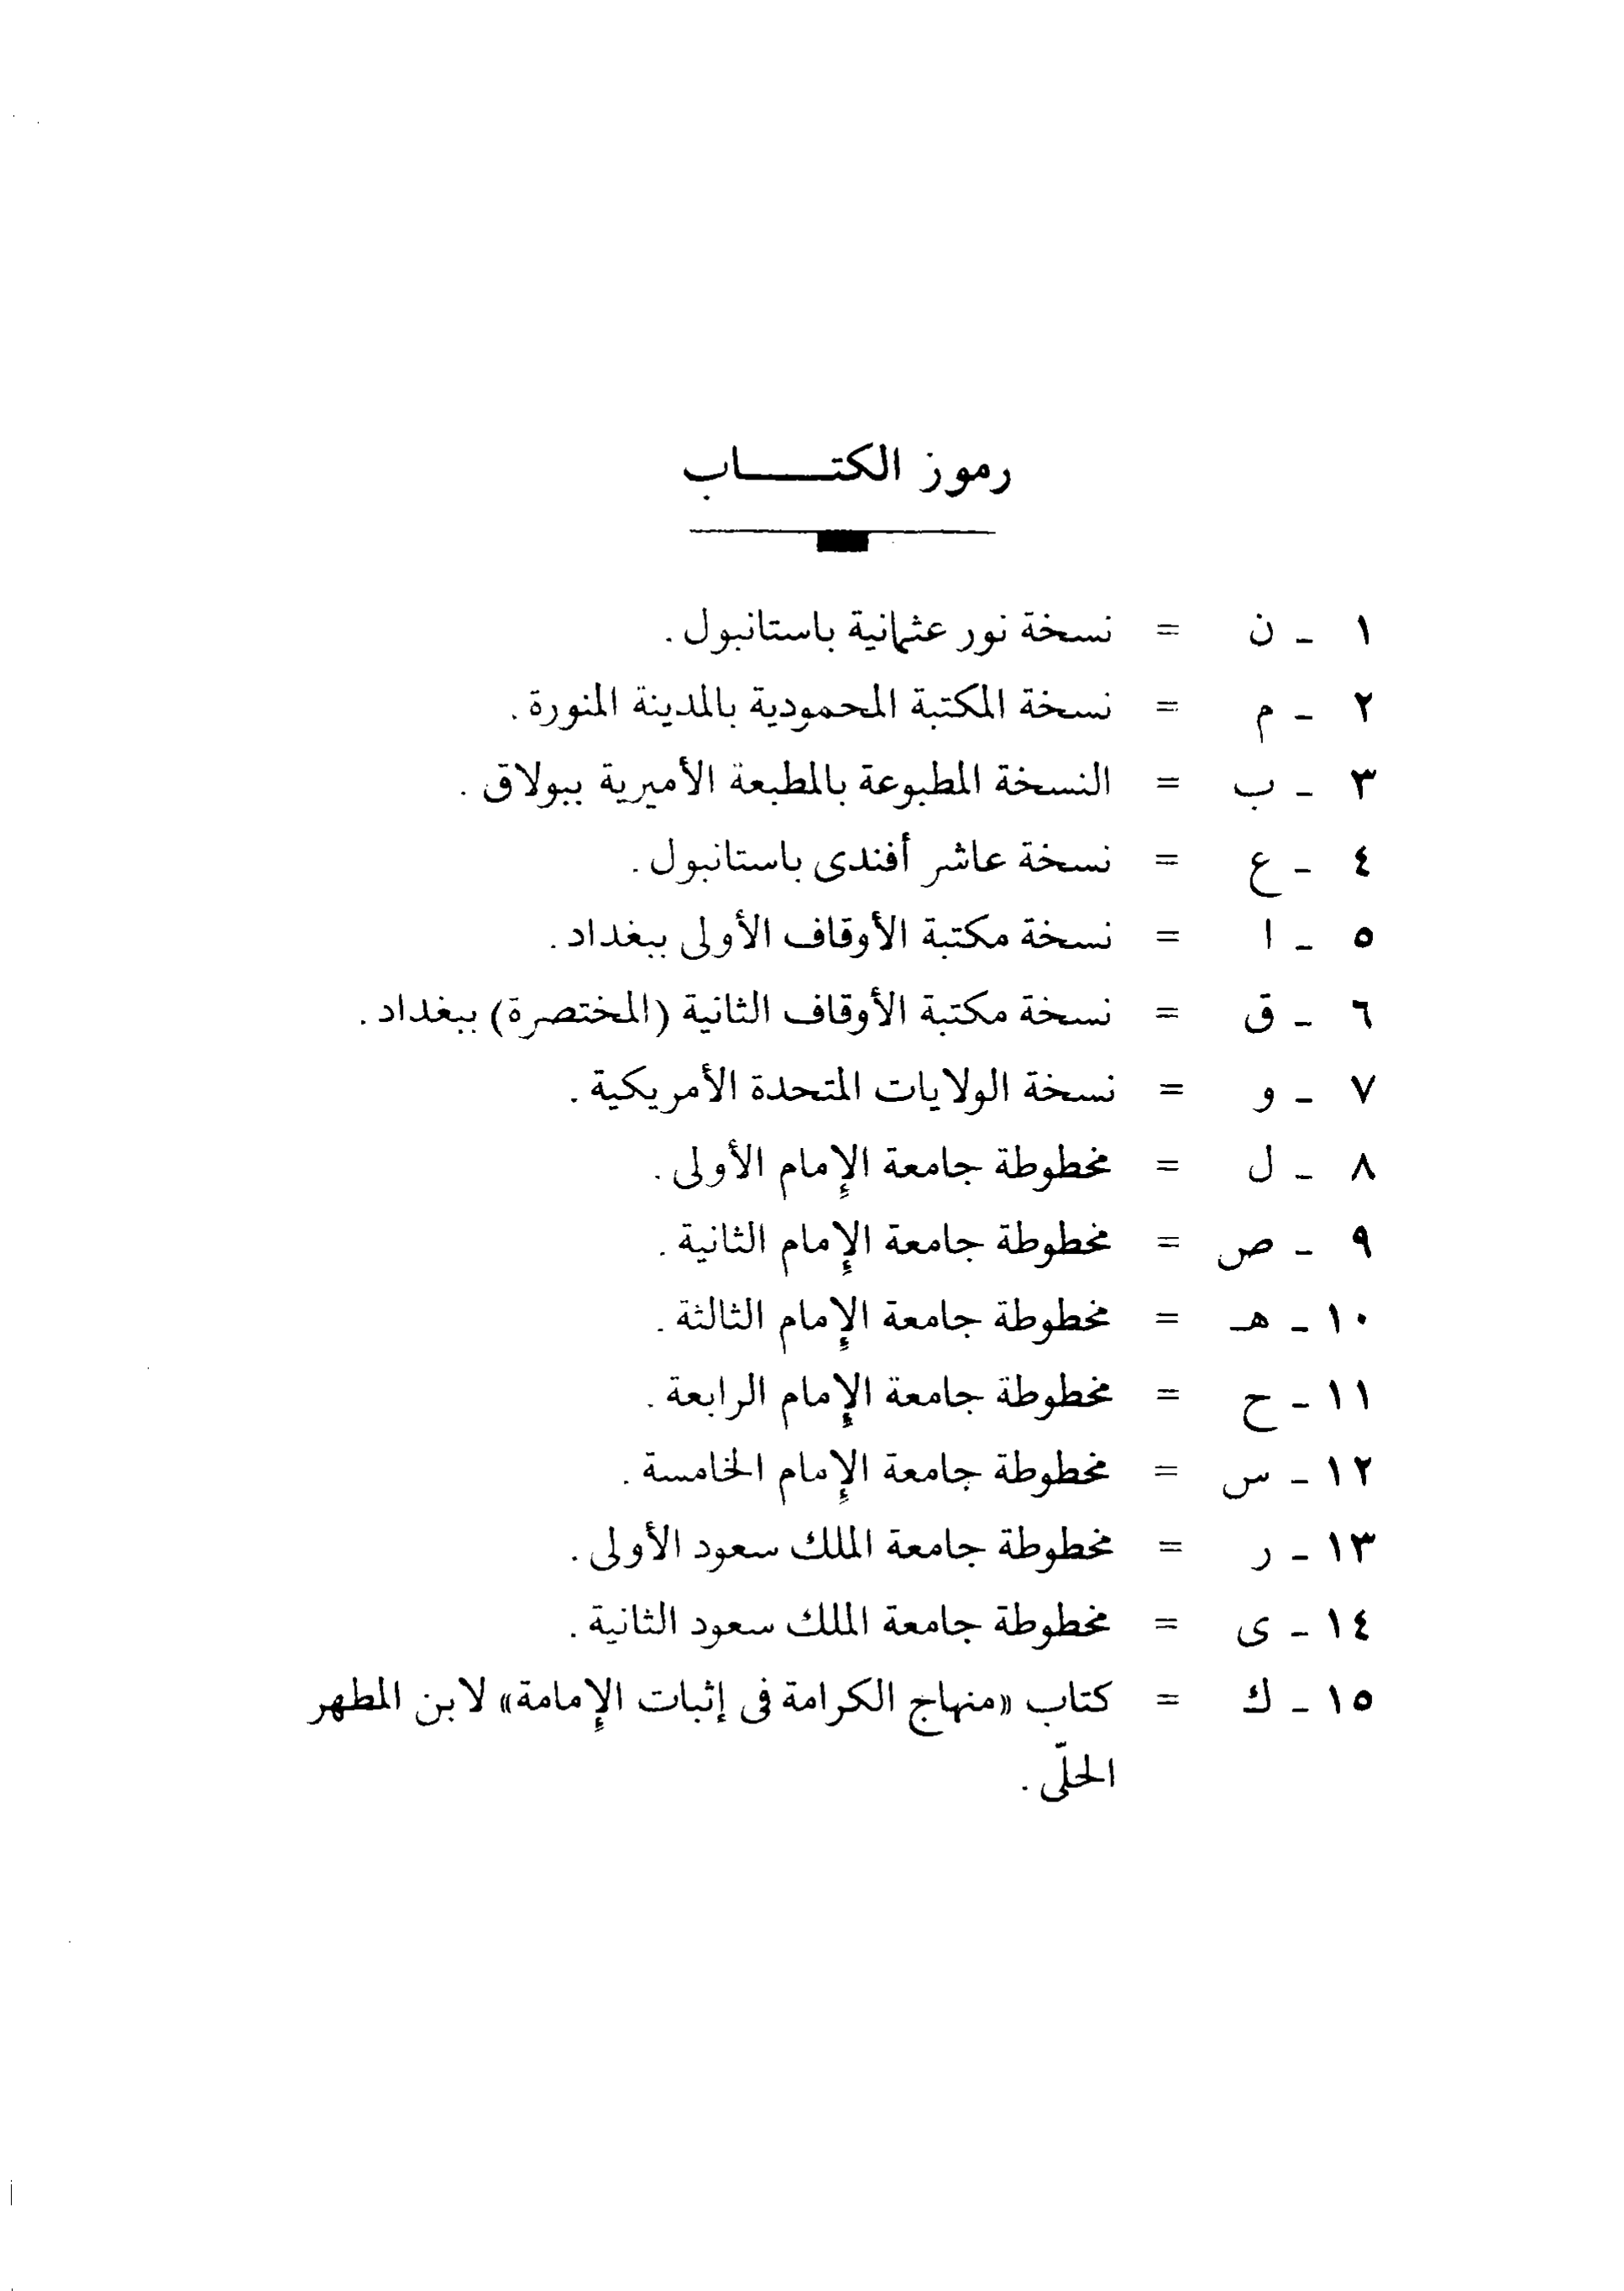 رموز الكتـــــاب
١ - ن = نسخة نور عثمانية باستانبول.
٢ - م = نسخة المكتبة المحمودية بالمدينة المنورة.
٣ - ب = النسخة المطبوعة بالمطبعة الأميرية ببولاق.
٤ - ع = نسخة عاشر أفندى باستانبول.
٥ - ا = نسخة مكتبة الأوقاف الأولى ببغداد.
٦ - ق = نسخة مكتبة الأوقاف الثانية (المختصرة) ببغداد.
٧ - و = نسخة الولايات المتحدة الأمريكية.
٨ - ل = مخطوطة جامعة الإمام الأولى.
٩ - ص = مخطوطة جامعة الإمام الثانية.
١٠ - هـ = مخطوطة جامعة الإمام الثالثة.
١١ - ح = مخطوطة جامعة الإمام الرابعة.
١٢ - س = مخطوطة جامعة الإمام الخامسة.
١٣ - ر = مخطوطة جامعة الملك سعود الأولى.
١٤ - ى = مخطوطة جامعة الملك سعود الثانية.
١٥ - ك = كتاب «منهاج الكرامة فى إثبات الإمامة» لابن المطهر
الحلّى.